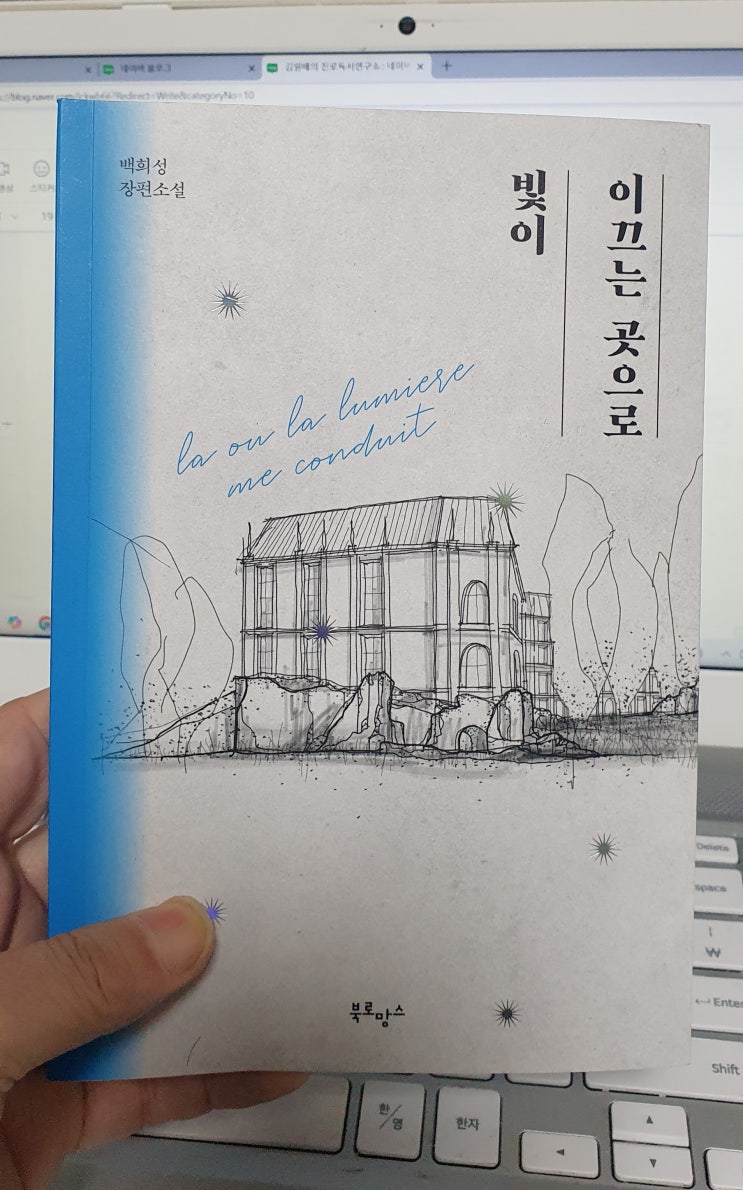 네이버 블로그
김원배의 진로독서연구소 : 네이버
백희성
장편소설
빛이
이끄는 곳으로
la ou la lumiere
me conduit
북로망스
Delete
space
₩
Enter
Shift
한/영
한자